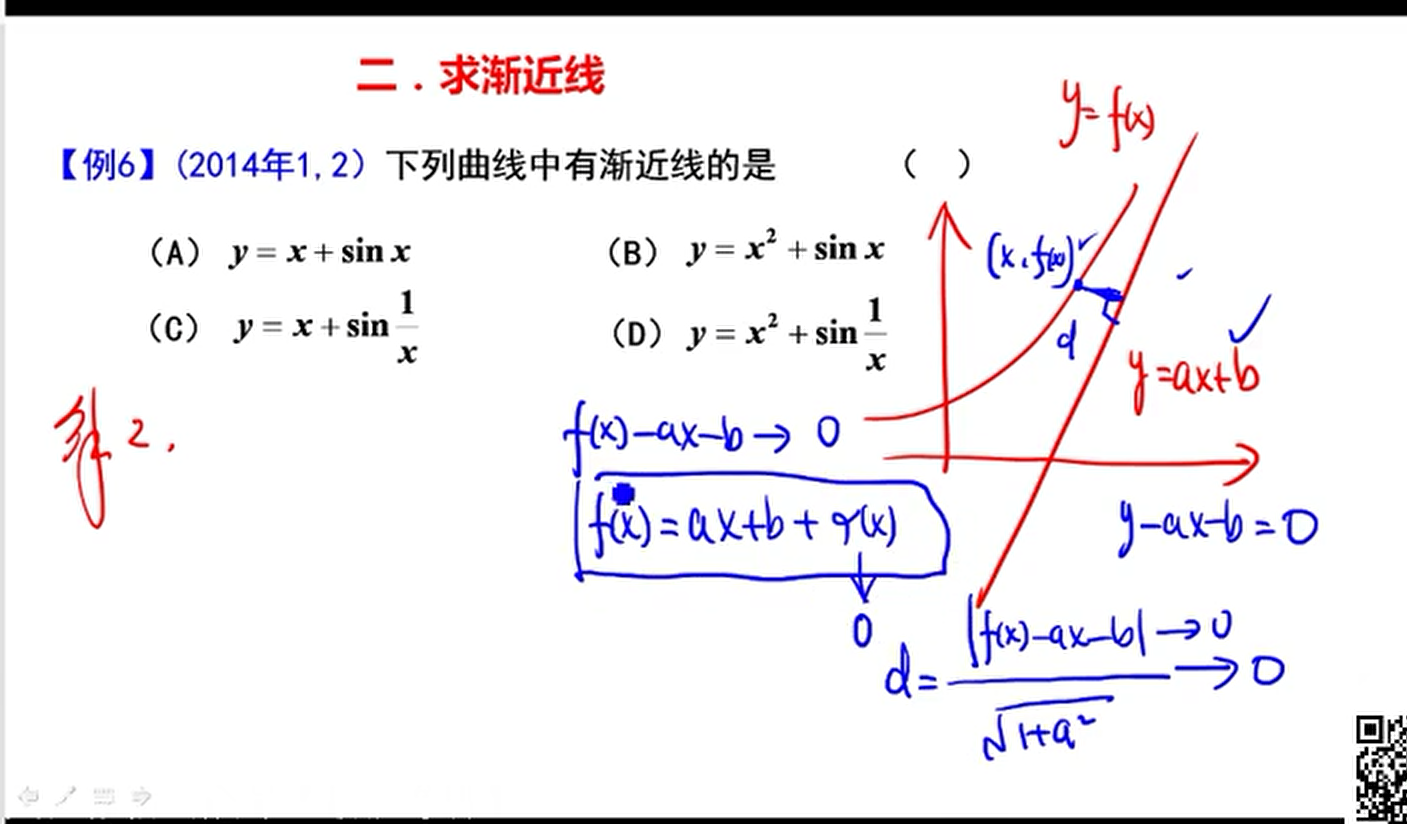 二．求渐近线
【例6】(2014年1,2) 下列曲线中有渐近线的是 ( )
(A) y = x + sin x
(B) y = x² + sin x
(C) y = x + sin 1/x
(D) y = x² + sin 1/x
y = f(x)
(x, f(x))
d
y = ax+b
解2.
f(x)-ax-b → 0
f(x) = ax+b + r(x)
↓
0
y-ax-b = 0
d = |f(x)-ax-b| → 0 / √1+a² → 0